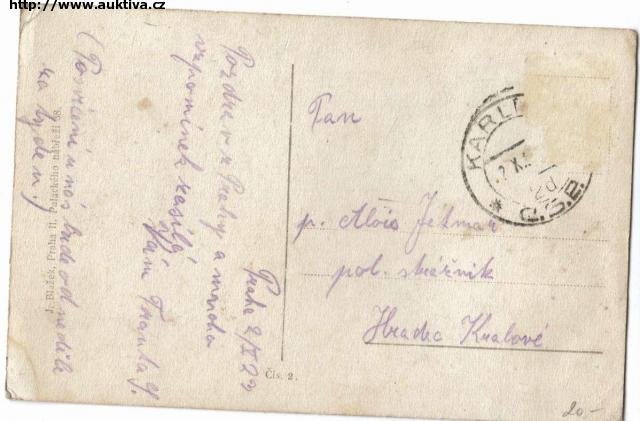 http://www.auktiva.cz
Praha 2/X 23
Pozdrav z Prahy a mnoho
vzpomínek zasílá
Vám Franta J.
(Posvícení u nás bude od neděle
za týden.)
J. Blažek, Praha II. Palackého nábřeží 58.
Čís. 2.
Pan
p. Alois Ježmar
pol. strážník
Hradec Králové
KARL
2.X.
* Č.S.P.
20.-